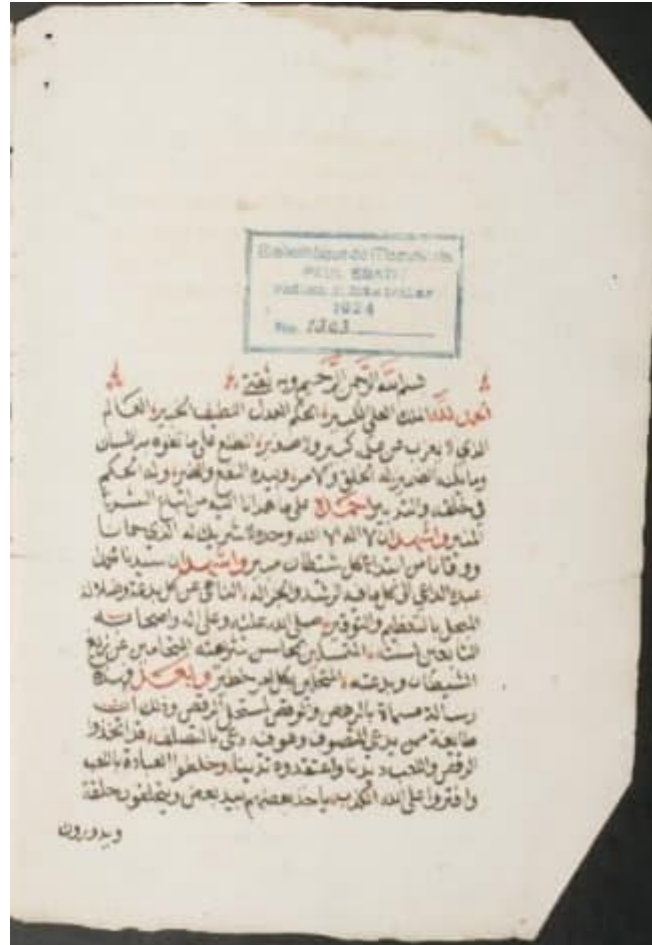 Bibliothèque de Manuscrits
PAUL SBATH
1924
No. 1303
بسم الله الرحمن الرحيم وبه ثقتي
الحمد لله الملك العلي الكبير الحكم العدل اللطيف الخبير العالم
الذي لا يعزب عن كبير ولا صغير المطلع على ما تفوه به اللسان
الضمير له الخلق والامر وبيده النفع والضر وله الحكم
في خلقه احمده على ما هدانا اليه من اتباع
المنير واشهد ان لا اله الا الله وحده لا شريك له الذي حمانا
ووقانا من ابتداع كل شيطان واشهد ان سيدنا محمدا
عبده الداعي الى كل ما فيه الرشد والجزاله الناهي عن كل بدعة وضلاله
المبجل بالتعظيم والتوقير صلى الله عليه وعلى اله واصحابه
التابعين لسنته بمحاسن شرعته عن زيغ
الشيطان وبدعته المتحلين بكل خطير وبعد فهذه
رسالة مسماة بالرهص والوقص لمستحل الرقص وذلك ان
طايفة ممن يدعي التصوف وهو في دعي بالتصلف قد اتخذوا
الرقص واللعب دينا واعتقدوه تدينا وخلطوا العبادة باللعب
وافتروا على الله الكذب ياخذ بعضهم بيد بعض ويتحلقون حلقة
ويدورون